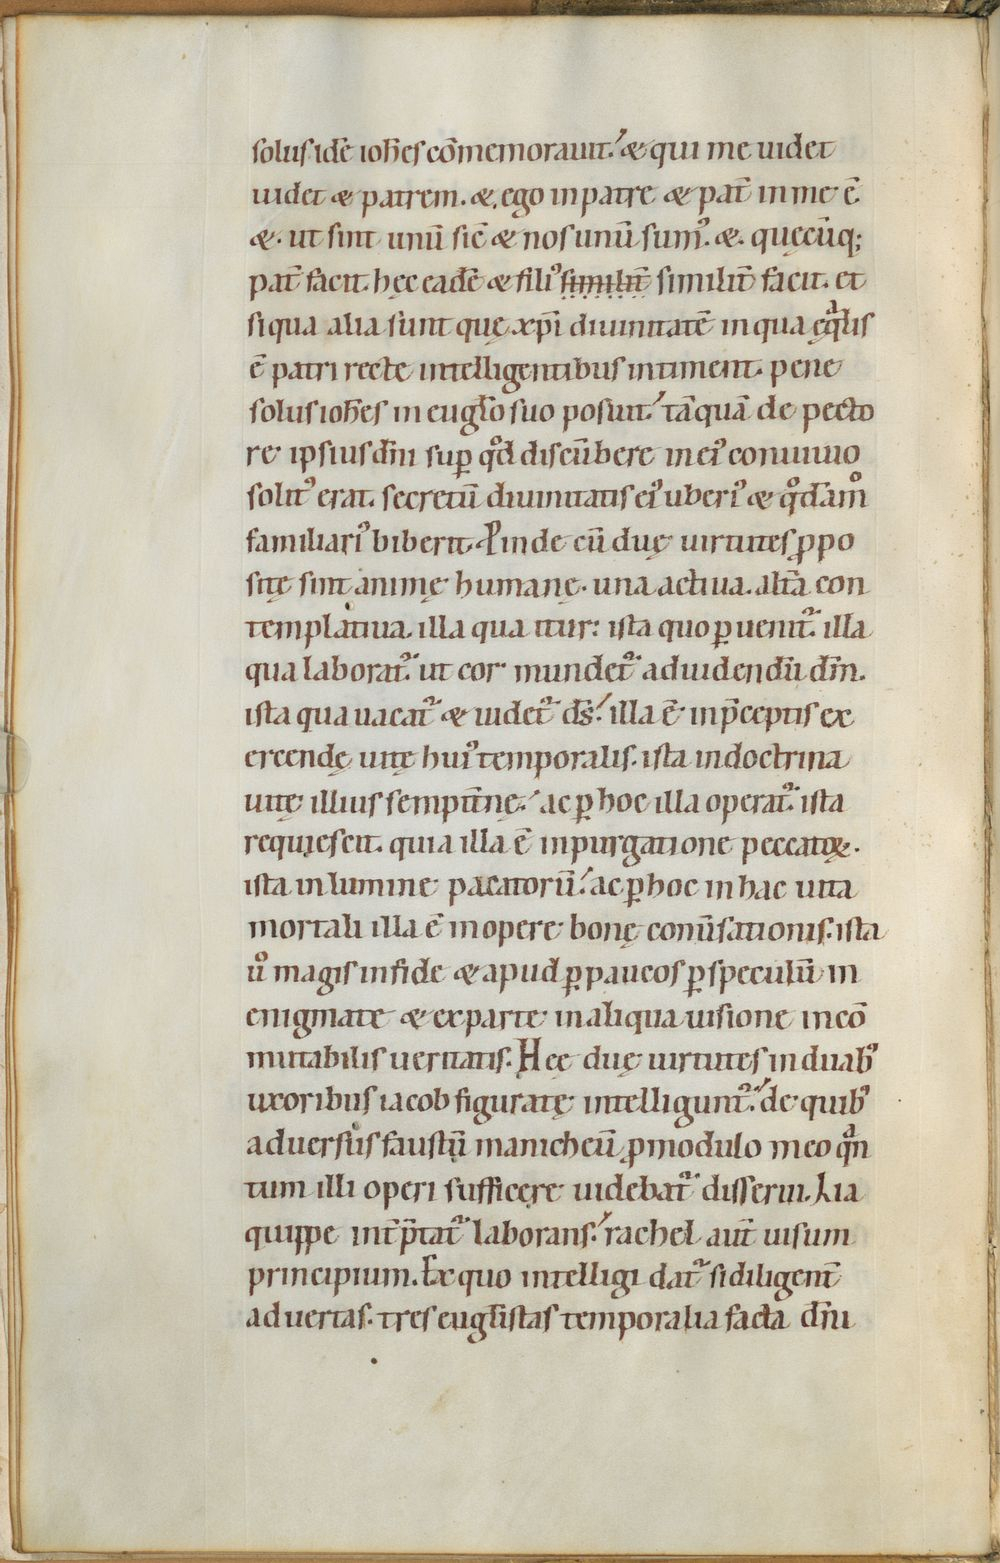 solus idē ioħes cōmemorauit. & qui me uidet
uidet & patrem. & ego in patre & pat̄ in me ē.
& ut sint unū sic̄ & nos unū sumꝰ. & quęcūq;
pat̄ facit. hęc eadē & filiꝰ similit̄ similit̄ facit. et
siqua alia sunt quę xp̄i diuinitatē in qua ęqͣlis
ē patri recte intelligentibus intiment. pene
solus ioħes in eugl̄o suo posuit. tāquā de pecto
re ipsius dn̄i suꝑ qͦd discūbere in eiꝰ conuiuio
solitꝰ erat. secretū diuinitatis eiꝰ uberiꝰ & qͦdāmͦ
familiariꝰ biberit. Pinde cū duę uirtutes ꝓpo
sitę sint animę humanę. una actiua. alt̄a con
templatiua. illa qua itur: ista quo ꝑuenit᷑. illa
qua laborat᷑. ut cor mundet᷑ ad uidendū dm̄.
ista qua uacat᷑ & uidet᷑ ds̄. illa ē in p̄ceptis ex
ercendę uitę huiꝰ temporalis. ista in doctrina
uitę illius sempit̄nę. ac ꝑ hoc illa operat᷑. ista
requiescit. quia illa ē in purgatione peccatoꝝ.
ista in lumine pacatorū. ac ꝑ hoc in hac uita
mortali illa ē in opere bonę conūsationis. ista
uͦ magis in fide & apud ꝑpaucos ꝑ speculū in
enigmate & ex parte in aliqua uisione incō
mutabilis ueritatis. Hęc duę uirtutes in duabꝰ
uxoribus iacob figuratę intelligunt᷑. de quibꝰ
aduersus faustū manicheū ꝓ modulo meo qͣn
tum illi operi sufficere uidebat᷑ disserui. Lia
quippe int̄p̄tat᷑ laborans. rachel aut̄ uisum
principium. Ex quo intelligi dat᷑ si diligent̄
aduertas. tres eugl̄istas temporalia facta dn̄i